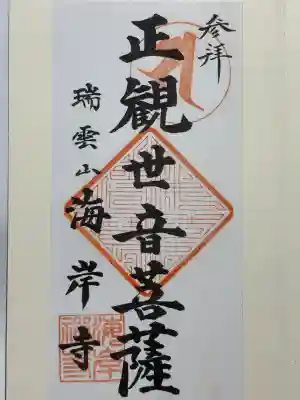 参拝
正観世音菩薩
瑞雲山海岸寺